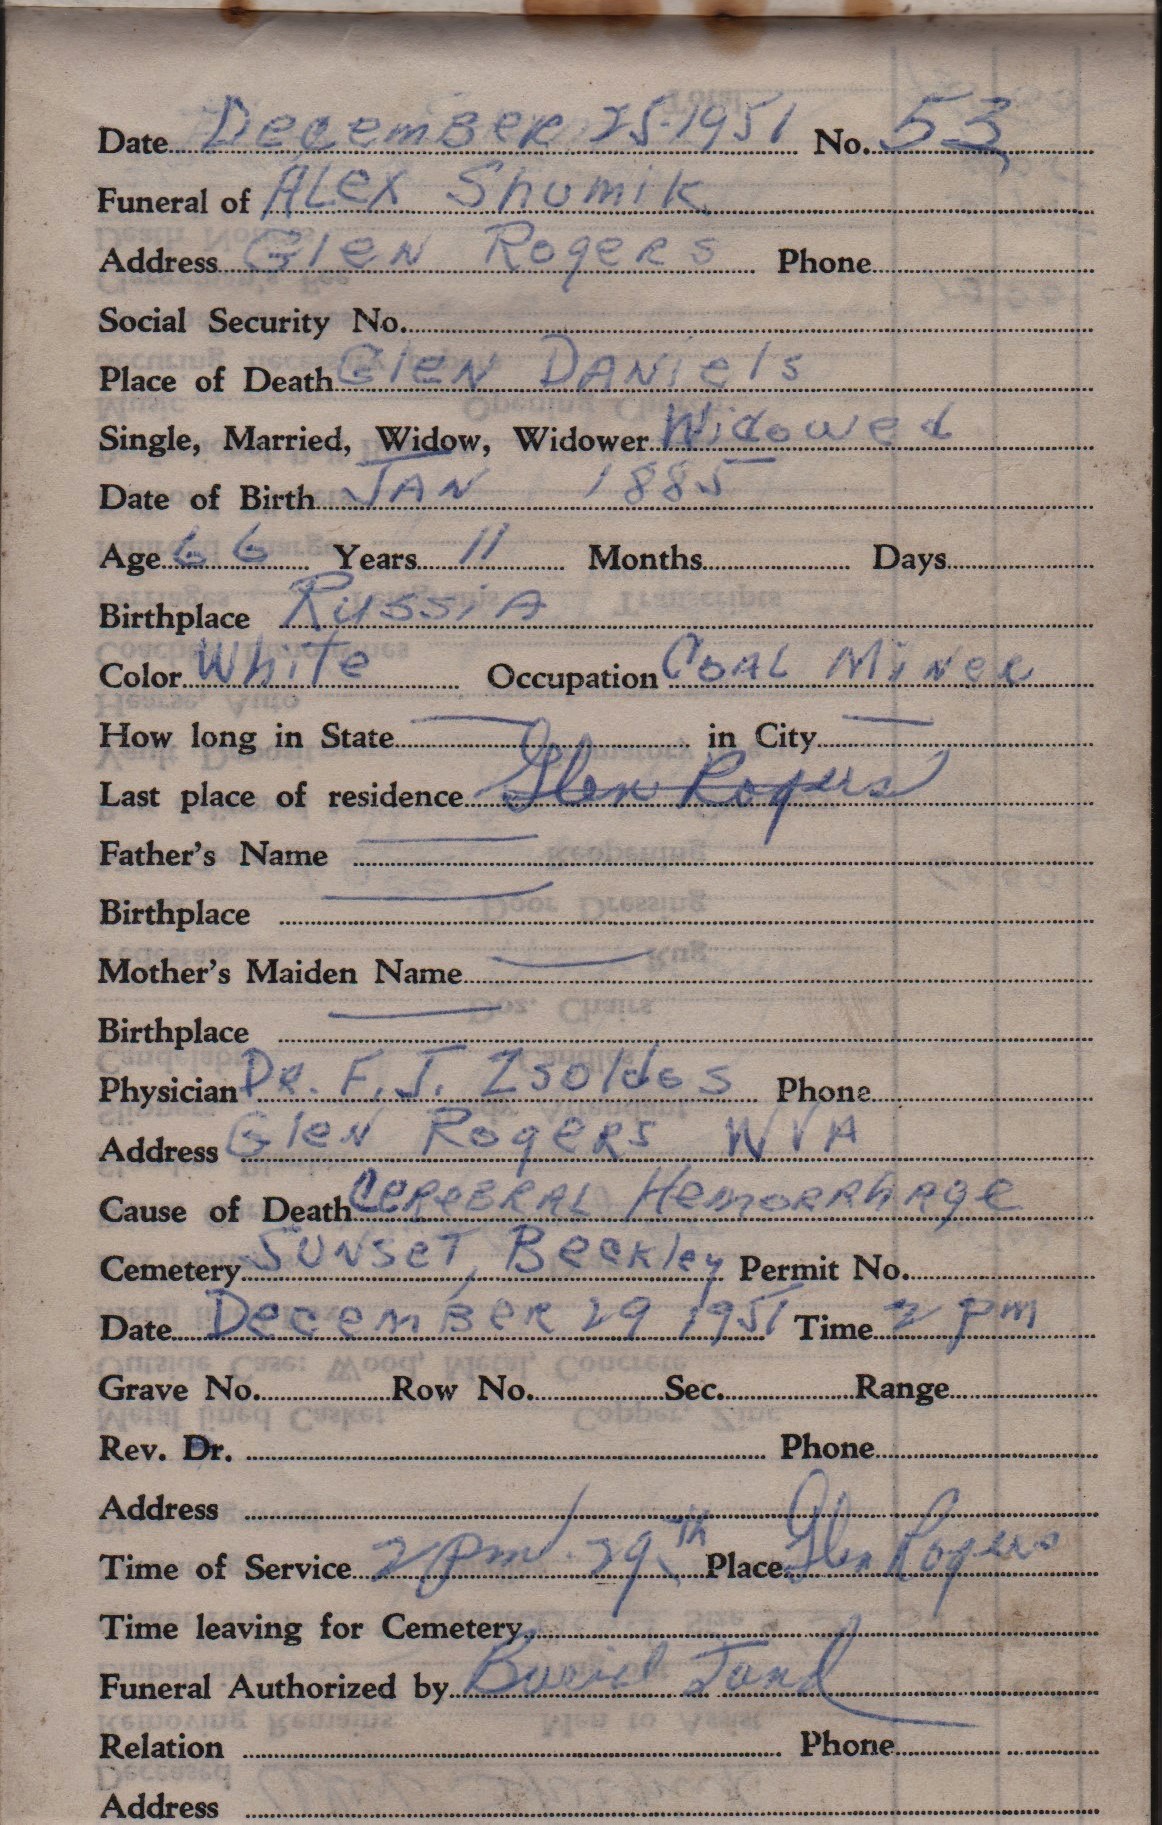 Date December 25-1951 No. 53
Funeral of Alex Shumik
Address Glen Rogers Phone
Social Security No.
Place of Death Glen Daniels
Single, Married, Widow, Widower Widowed
Date of Birth Jan 1885
Age 66 Years 11 Months Days
Birthplace Russia
Color White Occupation Coal Miner
How long in State — in City —
Last place of residence Glen Rogers
Father's Name —
Birthplace —
Mother's Maiden Name —
Birthplace —
Physician Dr. F. J. Zsoldos Phone
Address Glen Rogers W VA
Cause of Death Cerebral Hemorrhage
Cemetery Sunset, Beckley Permit No.
Date December 29 1951 Time 2 pm
Grave No. Row No. Sec. Range
Rev. Dr. Phone
Address
Time of Service 2 pm 29th Place Glen Rogers
Time leaving for Cemetery
Funeral Authorized by Burial
Relation Phone
Address